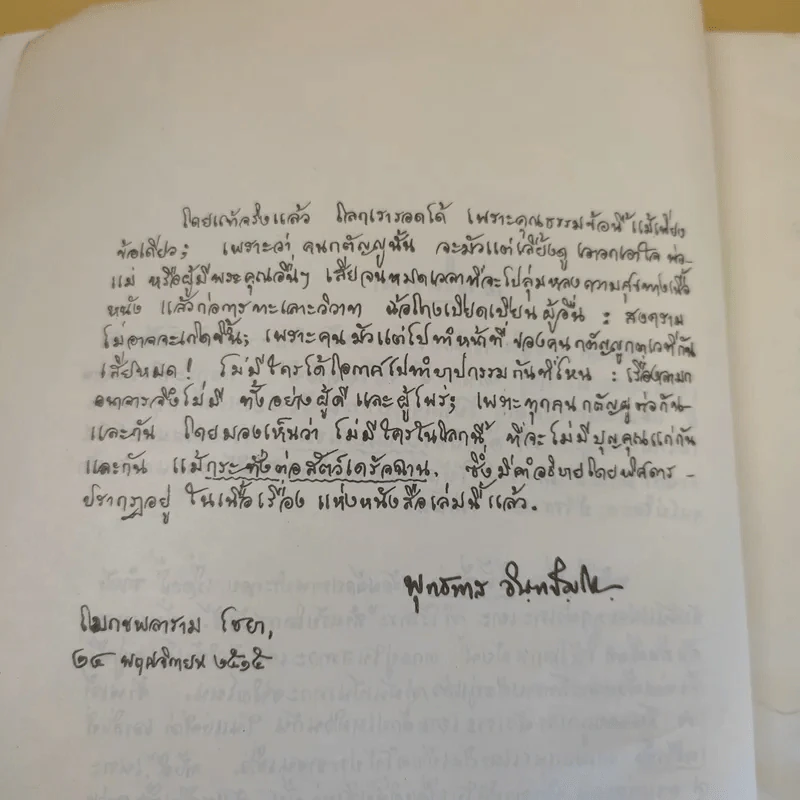 โดยแท้จริงแล้ว โลกเรารอดได้ เพราะคุณธรรมข้อนี้ แม้เพียง
ข้อเดียว; เพราะว่า คนกตัญญูนั้น จะมัวแต่เลี้ยงดู เอาอกเอาใจ พ่อ-
แม่ หรือผู้มีพระคุณอื่นๆ เสียจนหมดเวลาที่จะไปลุ่มหลงความสุขทางเนื้อ
หนัง แล้วก่อการทะเลาะวิวาท ฉ้อโกงเบียดเบียนผู้อื่น : สงคราม
ไม่อาจจะเกิดขึ้น; เพราะคนมัวแต่ไปทำหน้าที่ ของคนกตัญญูกตเวทีกัน
เสียหมด! ไม่มีใครได้โอกาสไปทำบาปกรรมกันที่ไหน : เรื่องลามก
อนาจารจึงไม่มี ทั้งอย่างผู้ดี และผู้ไพร่; เพราะทุกคนกตัญญูต่อกัน
และกัน โดยมองเห็นว่า ไม่มีใครในโลกนี้ ที่จะไม่มีบุญคุณแก่กัน
และกัน แม้กระทั่งต่อสัตว์เดรัจฉาน. ซึ่งมีคำอธิบายโดยพิสดาร -
ปรากฏอยู่ ในเนื้อเรื่อง แห่งหนังสือเล่มนี้แล้ว.
พุทธทาส อินฺทปญฺโญ
โมกขพลาราม ไชยา,
๒๔ พฤศจิกายน ๒๕๑๕